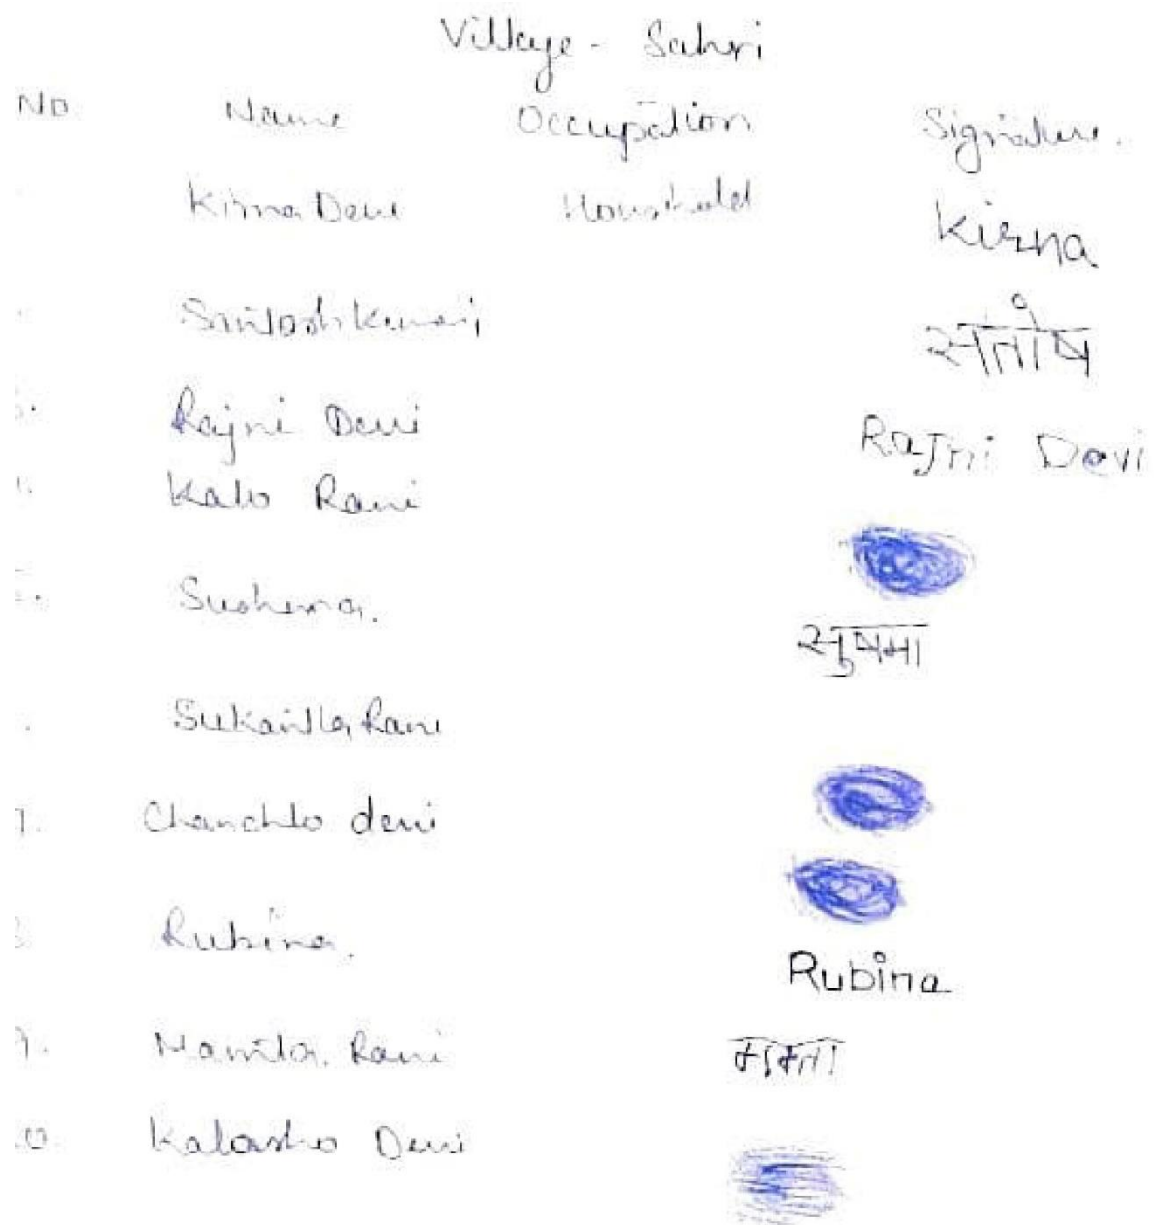 Village - Sahri
No Name Occupation Signature.
Kirna Devi Household Kirna
Santosh Kumari संतोष
3. Rajni Devi Rajni Devi
4. Kalo Rani
5. Sushma. सुषमा
Sukantla Rani
7. Chanchlo devi
8 Rubina. Rubina
9. Mamta Rani ममता
10. Kalasho Devi